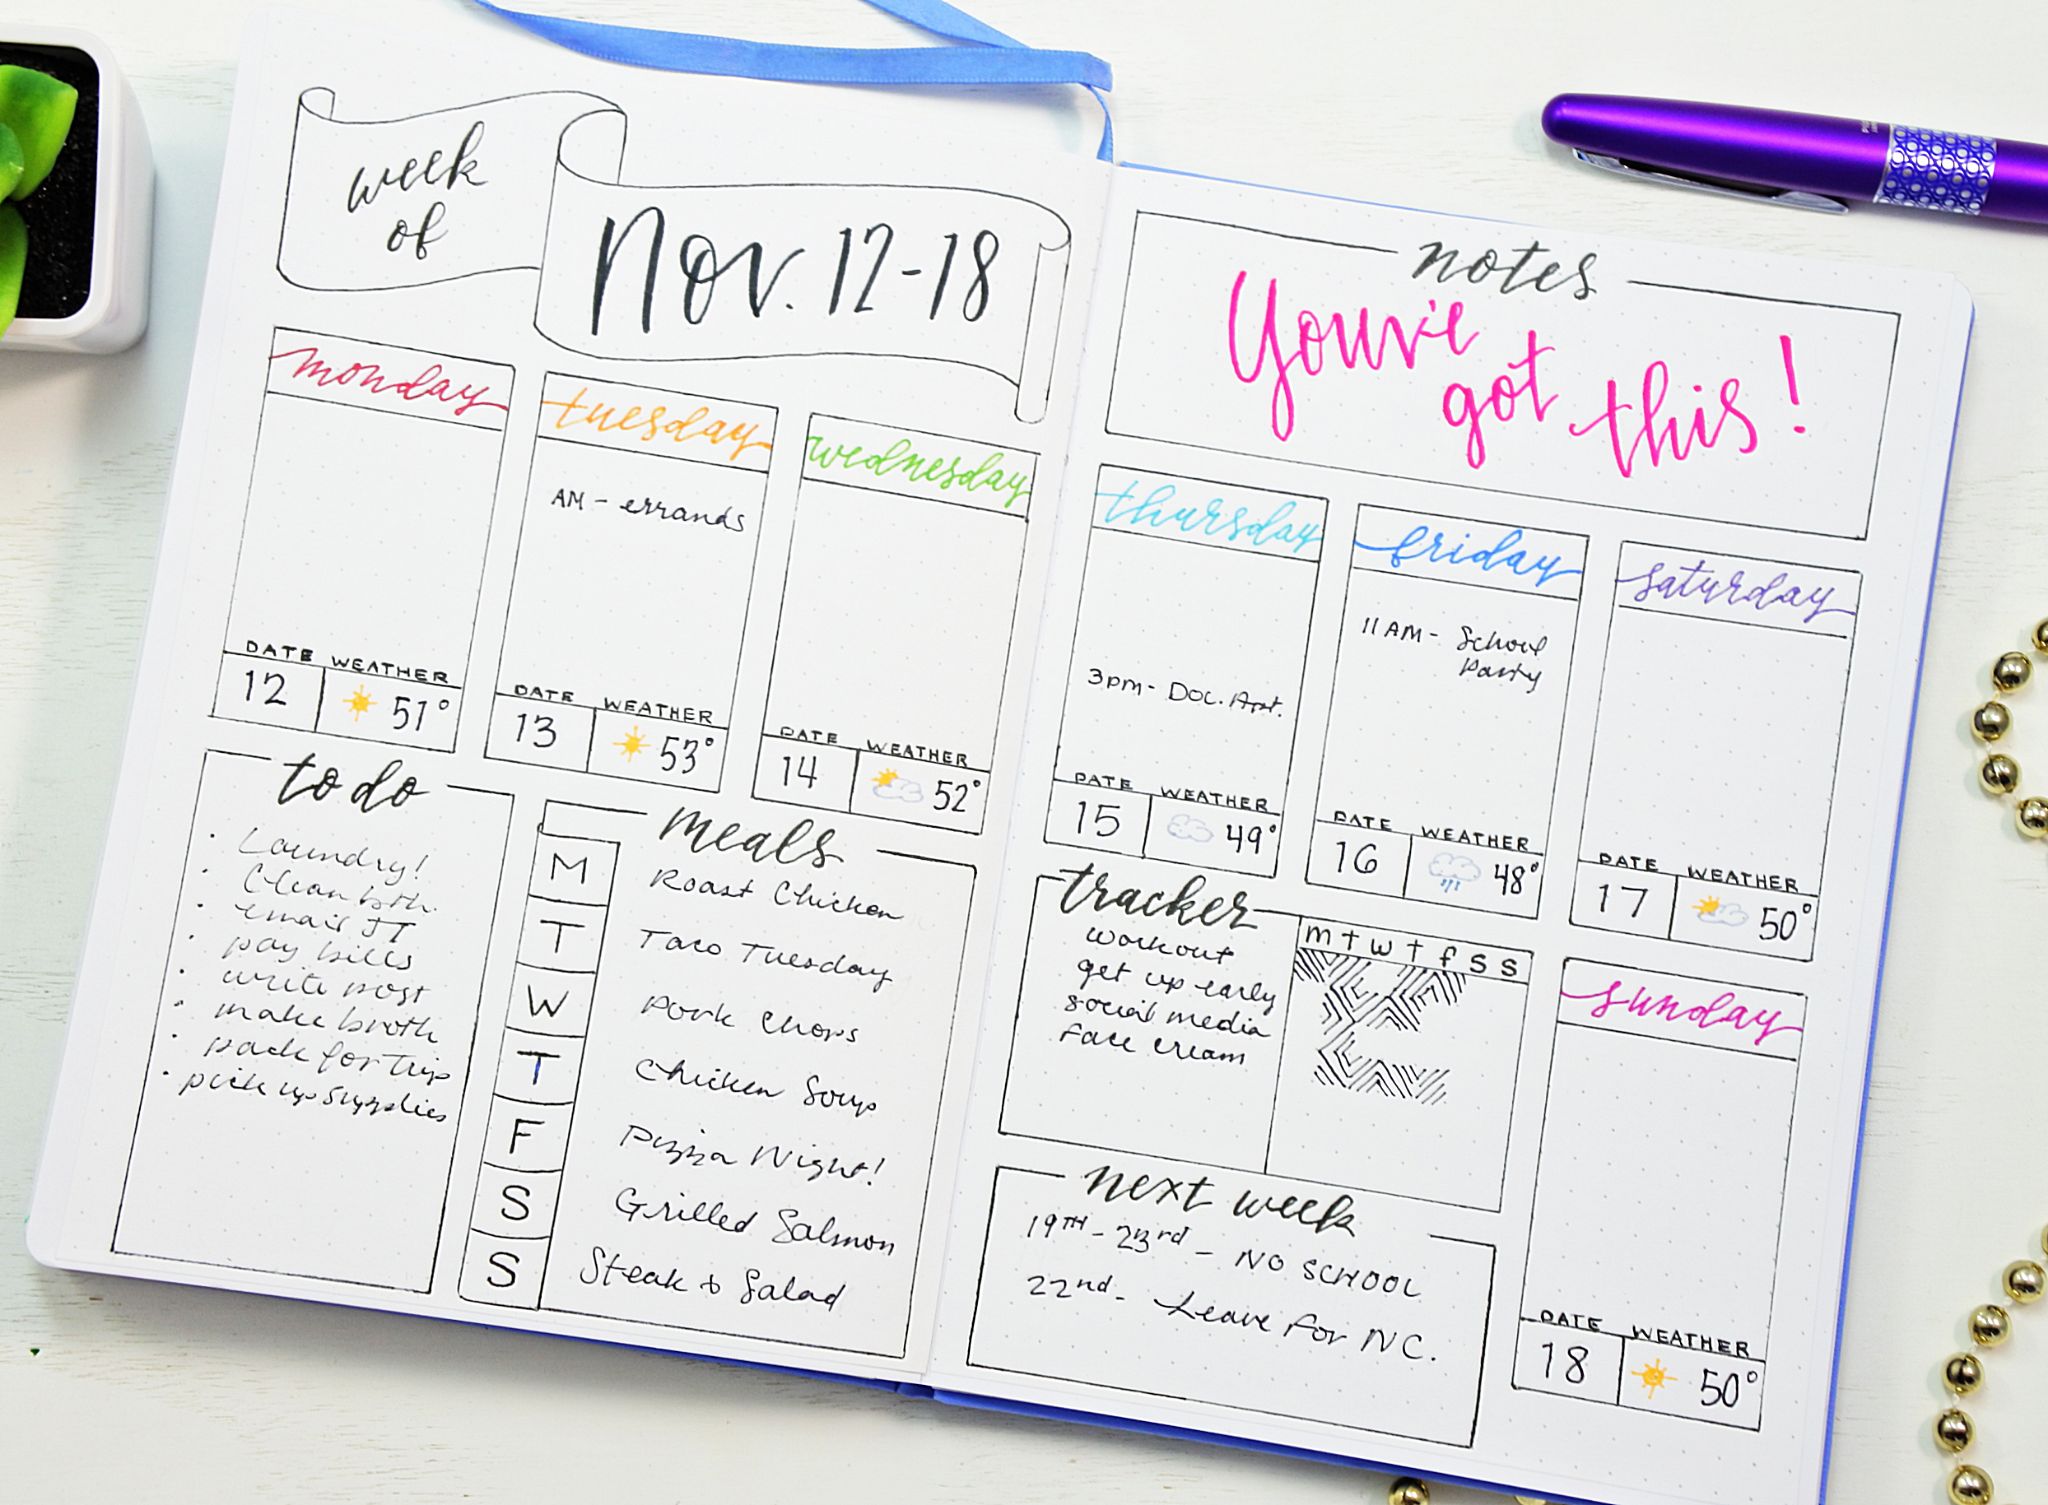 week
of
Nov. 12-18
monday
DATE WEATHER
12 51°
tuesday
AM - errands
DATE WEATHER
13 53°
wednesday
DATE WEATHER
14 52°
to do
• Laundry!
• Clean bth.
• email JT
• pay bills
• write post
• make broth
• pack for trip
• pick up supplies
meals
M Roast Chicken
T Taco Tuesday
W Pork Chops
T Chicken Soup
F Pizza Night!
S Grilled Salmon
S Steak + Salad
notes
You've
got
this!
thursday
3pm - Doc. Appt.
DATE WEATHER
15 49°
friday
11 AM - School
Party
DATE WEATHER
16 48°
saturday
DATE WEATHER
17 50°
tracker
m t w t f s s
workout
get up early
social media
face cream
sunday
DATE WEATHER
18 50°
next week
19TH - 23rd - NO SCHOOL
22nd - Leave for NC.